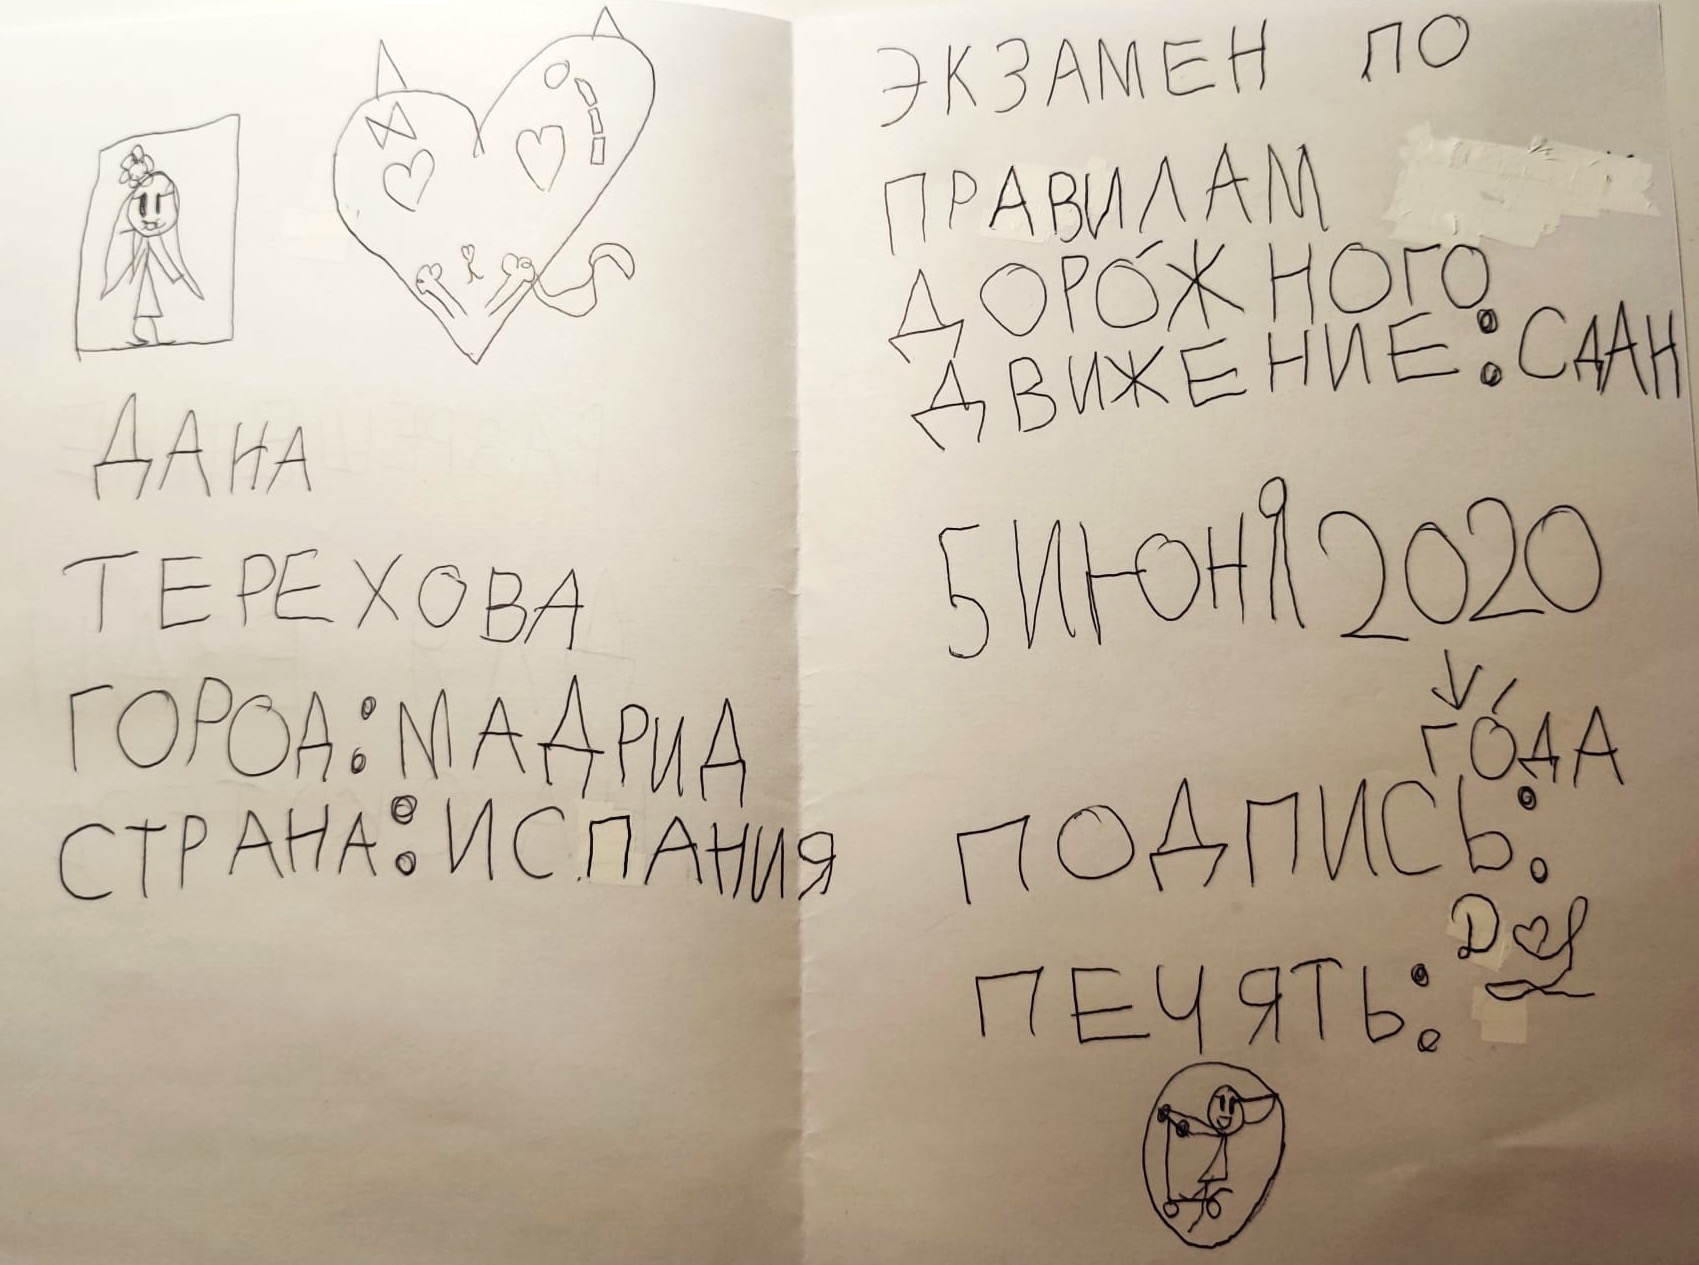 ДАНА
ТЕРЕХОВА
ГОРОД:МАДРИД
СТРАНА:ИСПАНИЯ
ЭКЗАМЕН ПО
ПРАВИЛАМ
ДОРО́ЖНОГО
ДВИЖЕНИЕ:СДАН
5 ИЮНЯ 2020
ГО́ДА
ПОДПИСЬ:
ПЕЧЯТЬ: